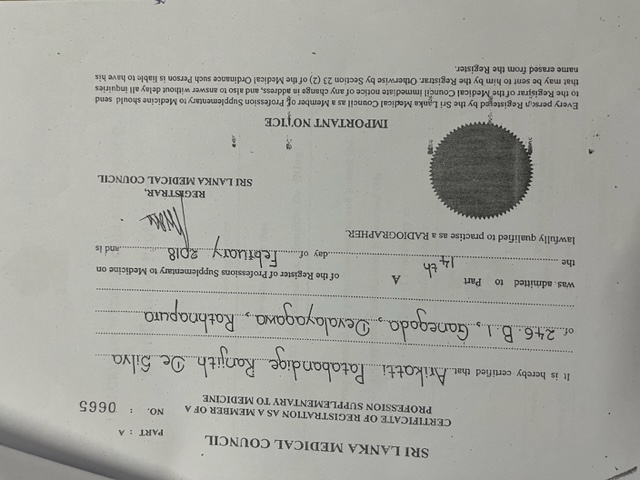 SRI LANKA MEDICAL COUNCIL
PART : A
CERTIFICATE OF REGISTRATION AS A MEMBER OF A
PROFESSION SUPPLEMENTARY TO MEDICINE
NO. : 0665
It is hereby certified that Arikatti Patabandige Ranjith De Silva
of 246. B. 1, Ganegoda, Devalayagawa, Rathnapura
was admitted to Part A of the Register of Professions Supplementary to Medicine on
the 14th day of February 2018 and is
lawfully qualified to practise as a RADIOGRAPHER.
REGISTRAR,
SRI LANKA MEDICAL COUNCIL
IMPORTANT NOTICE
Every person Registered by the Sri Lanka Medical Council as a Member of Profession Supplementary to Medicine should send
to the Registrar of the Medical Council immediate notice of any change in address, and also to answer without delay all inquiries
that may be sent to him by the Registrar. Otherwise by Section 23 (2) of the Medical Ordinance such Person is liable to have his
name erased from the Register.